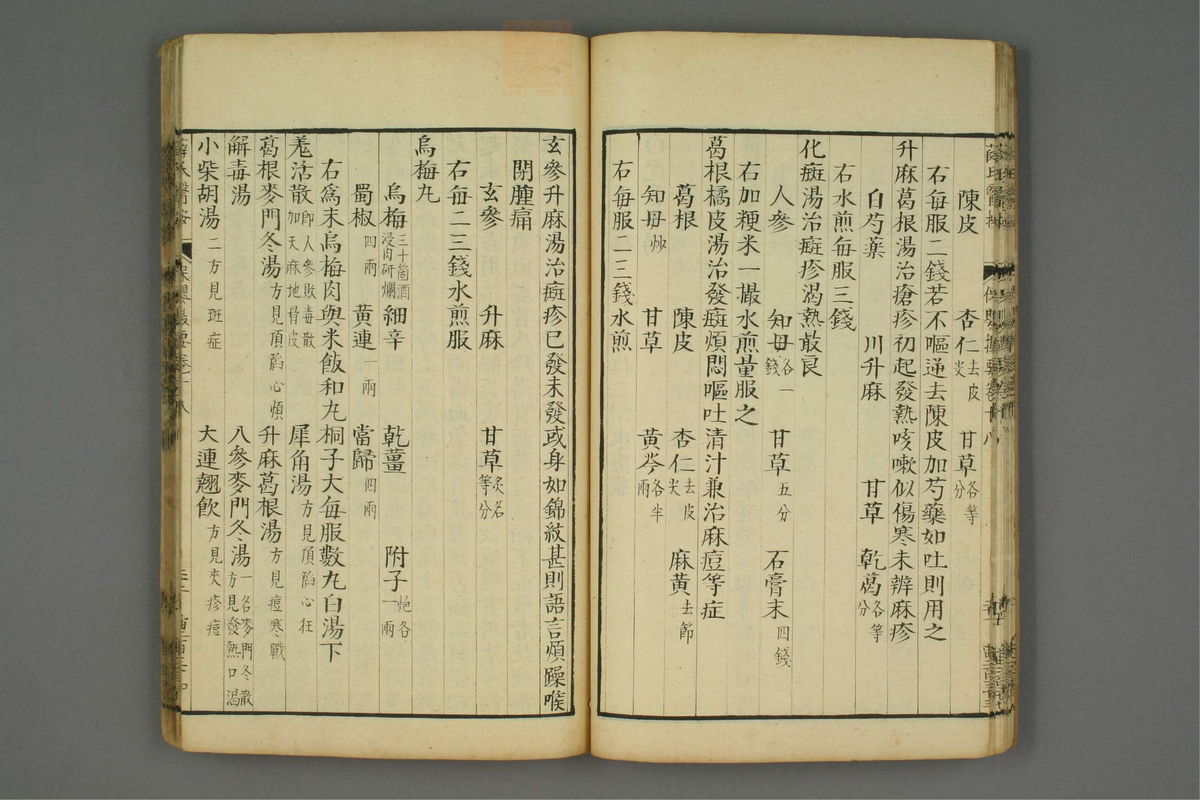 陳皮 杏仁去皮尖 甘草各等分
右每服二錢若不嘔逆去陳皮加芍藥如吐則用之
升麻葛根湯治瘡疹初起發熱咳嗽似傷寒未辨麻疹
白芍藥 川升麻 甘草 乾葛各等分
右水煎每服三錢
化癍湯治癍疹渴熱最良
人參 知母各一錢 甘草五分 石膏末四錢
右加粳米一撮水煎量服之
葛根橘皮湯治發癍煩悶嘔吐清汁兼治麻痘等症
葛根 陳皮 杏仁去皮尖 麻黃去節
知母炒 甘草 黃芩各半兩
右每服二三錢水煎
玄參升麻湯治癍疹已發未發或身如錦紋甚則語言煩躁喉
閉腫痛
玄參 升麻 甘草炙各等分
右每二三錢水煎服
烏梅丸
烏梅三十箇酒浸肉研爛 細辛 乾薑 附子炮各一兩
蜀椒四兩 黃連一兩 當歸四兩
右爲末烏梅肉與米飯和丸桐子大每服數丸白湯下
羗活散即人參敗毒散加天麻地骨皮 犀角湯方見頂陷心狂
葛根麥門冬湯方見頂陷心煩 升麻葛根湯方見痘寒戰
解毒湯 八參麥門冬湯一名麥門冬散方見發熱口渴
小柴胡湯二方見斑症 大連翹飲方見夾疹痘